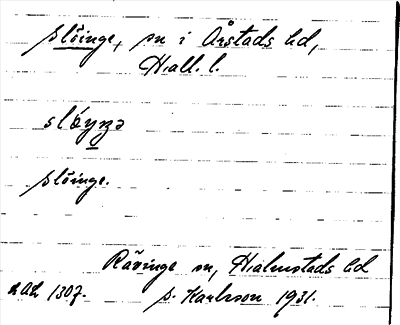 Slöinge, sn i Årstads hd,
Hall. l.
slöyŋə
Slöinge.
Rävinge sn, Halmstads hd
1307. S. Karlsson 1931.